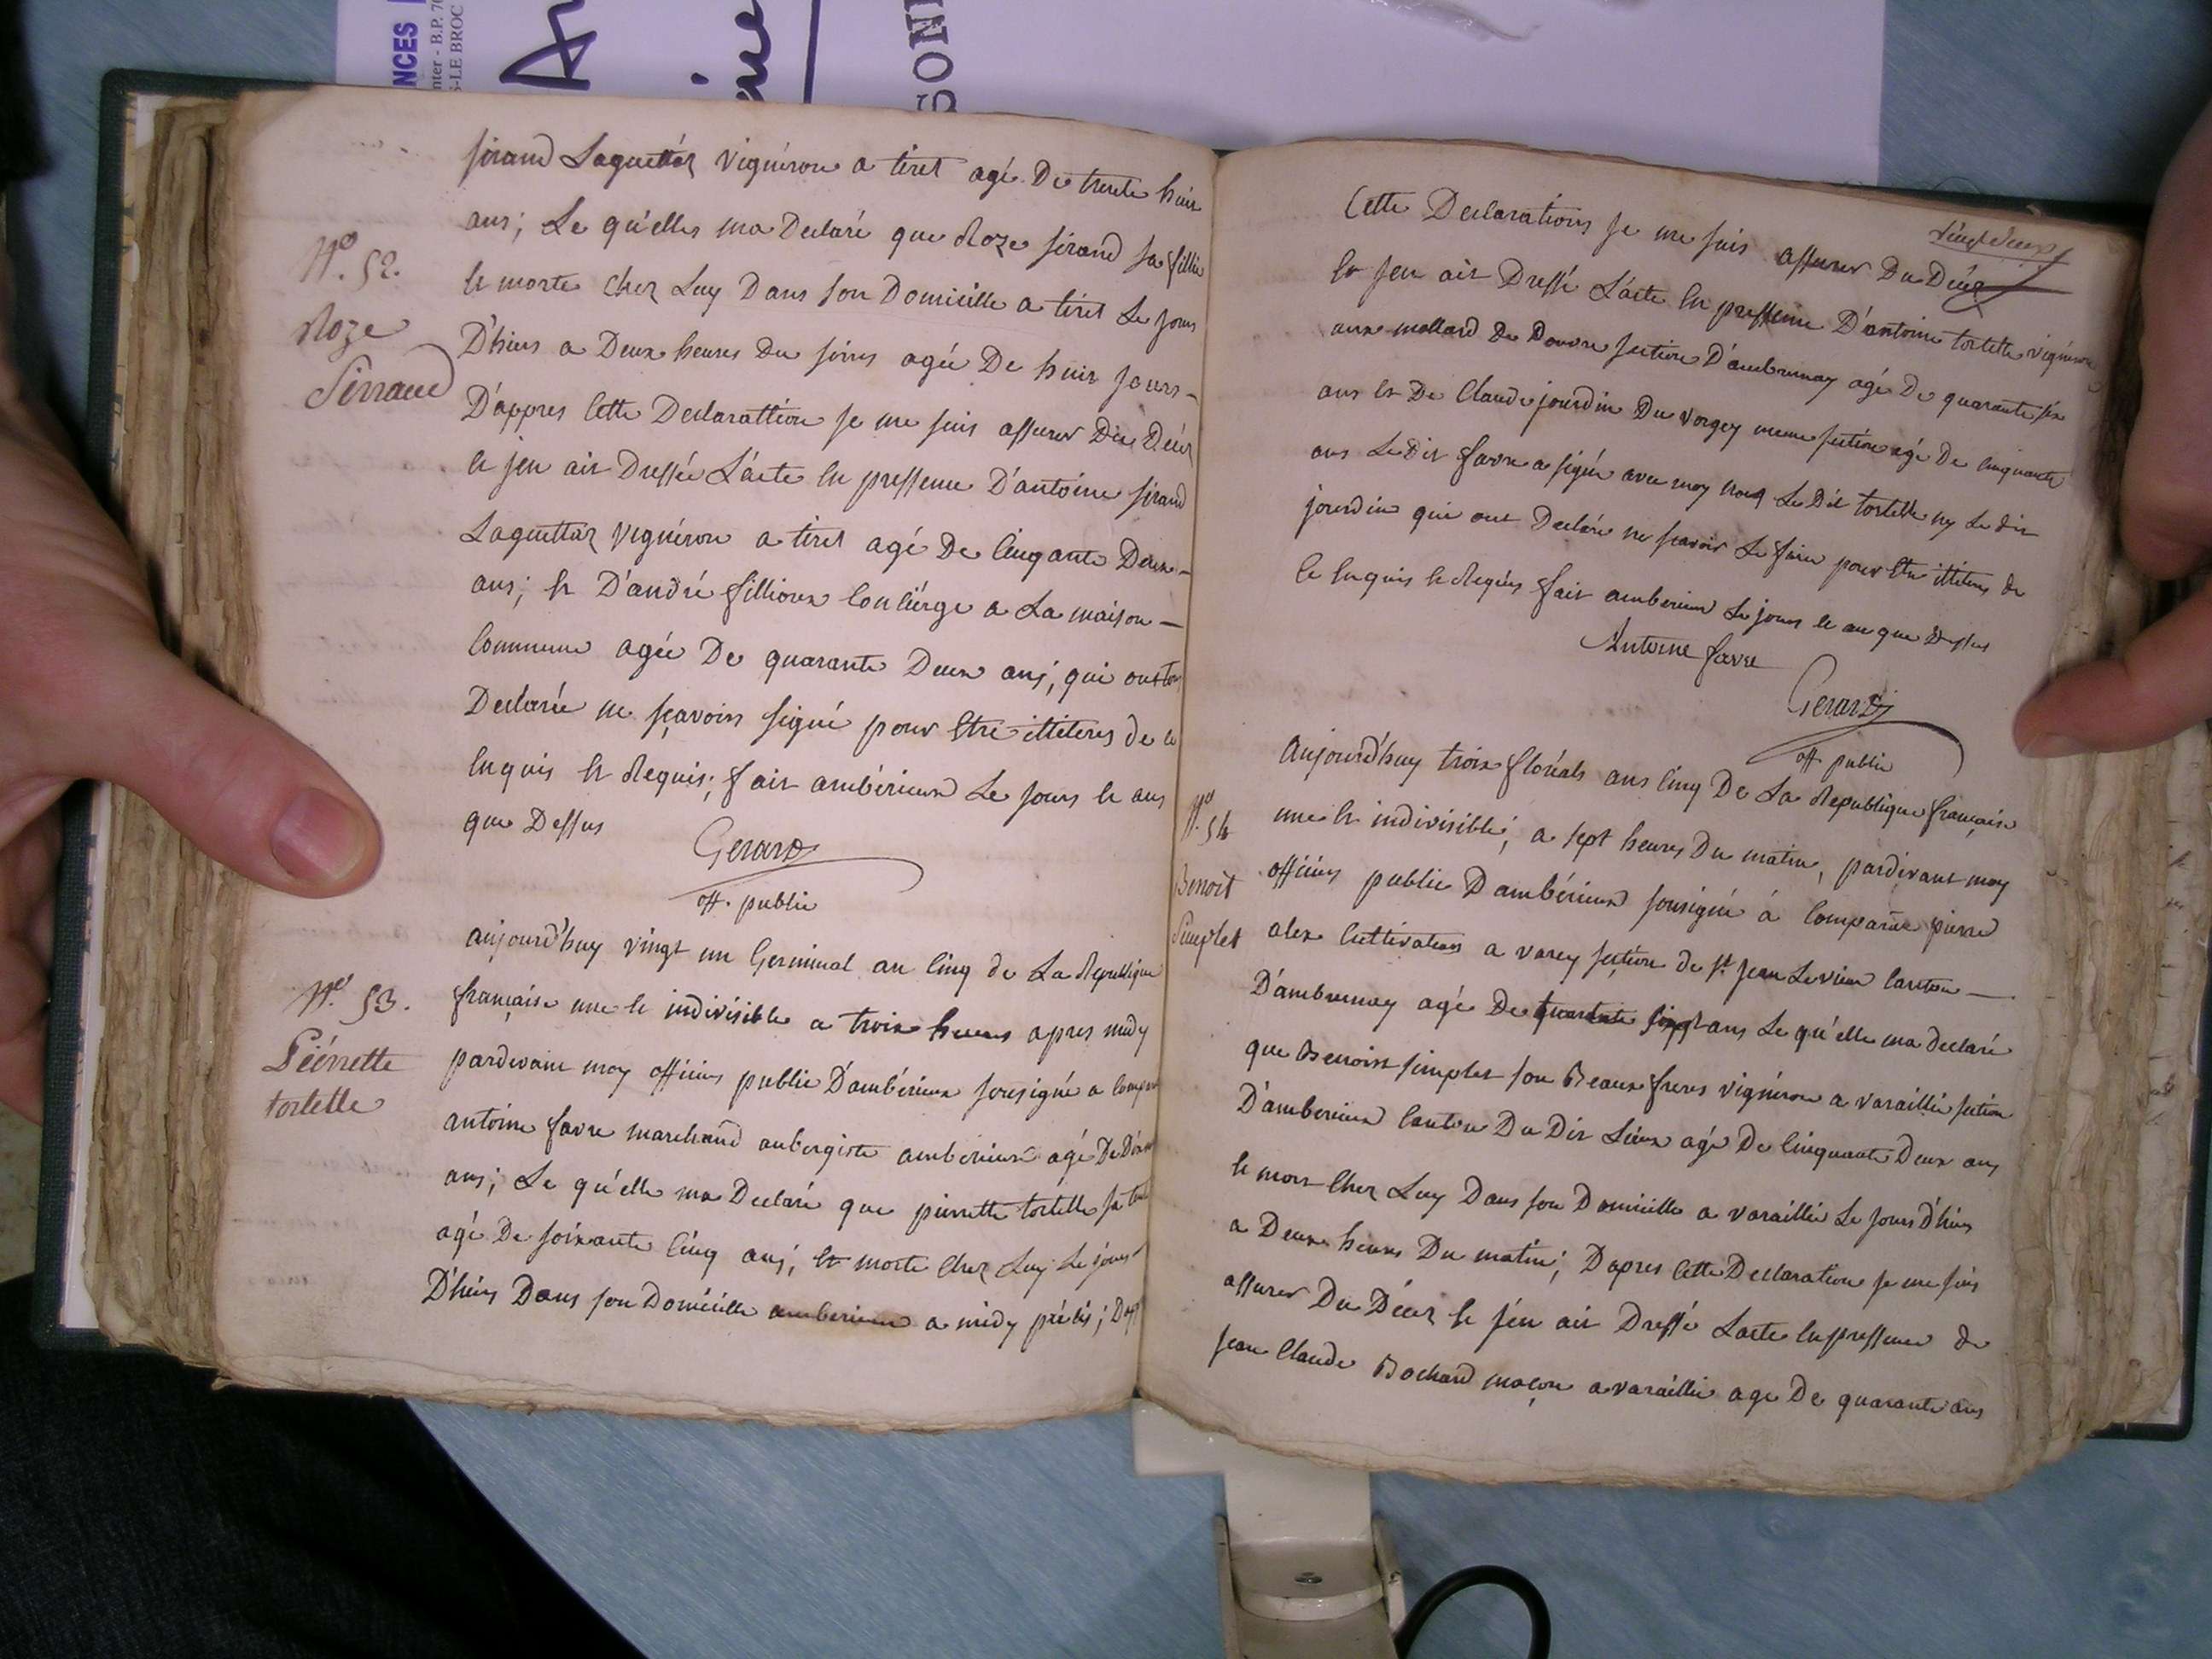 NCES
B.P. 70
-LE BROC
SON
N° 52.
Roze
Sirraud
sirand Laguettaz vignéron a tiret agé De trente huit
ans; Le qu'elles ma Declaré que Roze sirand sa fillie
et morte chez Luy Dans son Domicille a tiret Le jour
D'hiers a Deux heures du soirs agée De huit jours-
D'appres Cette Declarattion je me suis assurer Du Décéz
et jen ait Dressée L'acte En pressence D'antoine sirand
Laguettaz vignéron a tiret agé De Cinqante Deux-
ans; et D'andré fillioux Conciérge a La maison-
Commune agée De quarante Deux ans, qui ont
Declarée ne sçavoirs signé pour Etre illiteres de ce
Enquis et Requis; fait ambérieux Le jours et ans
que Dessus
Gerard
off. public
N° 53.
Piérrette
tortelle
aujourd'huy vingt un Germinal an Cinq de La Republique
française une et indivisible a trois heures apres midy
pardevant moy officiers public D'ambérieux sousigné a
antoine favre marchand aubergiste amberieux agé De
ans; Le qu'elle ma Declaré que pierrette tortelle sa
agé De soixante Cinq ans, et morte Chez Luy Le jours
D'hiers Dans son Domicille amberieux a midy précis;
vingt deux
Cette Declarations je me suis assurer Du Décéz
et jen ait Dressé L'acte En pressence D'antoine tortelle vignéron
aux mollard De Douvre section D'ambronay agé De quarante six
ans et De Claude jourdin Du vorgey meme section agé De Cinquante
ans Le Dit favre a signé avec moy non Le Dit tortelle ny Le dit
jourdin qui ont Declaré ne scavoir Le faire pour Etre illiteres de
ce Enquis et Requis fait amberieux Le jours et an que Dessus
Antoine favre
Gerard
off public
N° 54
Benoit
Simplet
Aujourd'huy trois floréals ans Cinq De La Republique française
une et indivisible, a sept heures Du matin, pardevant moy
officiers public D'ambérieux sousigné á Comparue pierre
alex Cultivateurs a varey section de st jean Le vieux Canton-
D'ambronay agé De quarante sept ans Le qu'elle ma declaré
que Benoist simplet son Beaux freres vignéron a varaillie section
D'amberieux Canton Du Dit Lieux agé De Cinquante Deux ans
et mort Chez Luy Dans son Domicille a varaillié Le jours D'hiers
a Deux heures Du matin; Dapres Cette Declaration je me suis
assurer Du Décéz et j'en ait Dressé Lacte En pressence de
jean Claude Bochard maçon a varaillie age De quarante ans